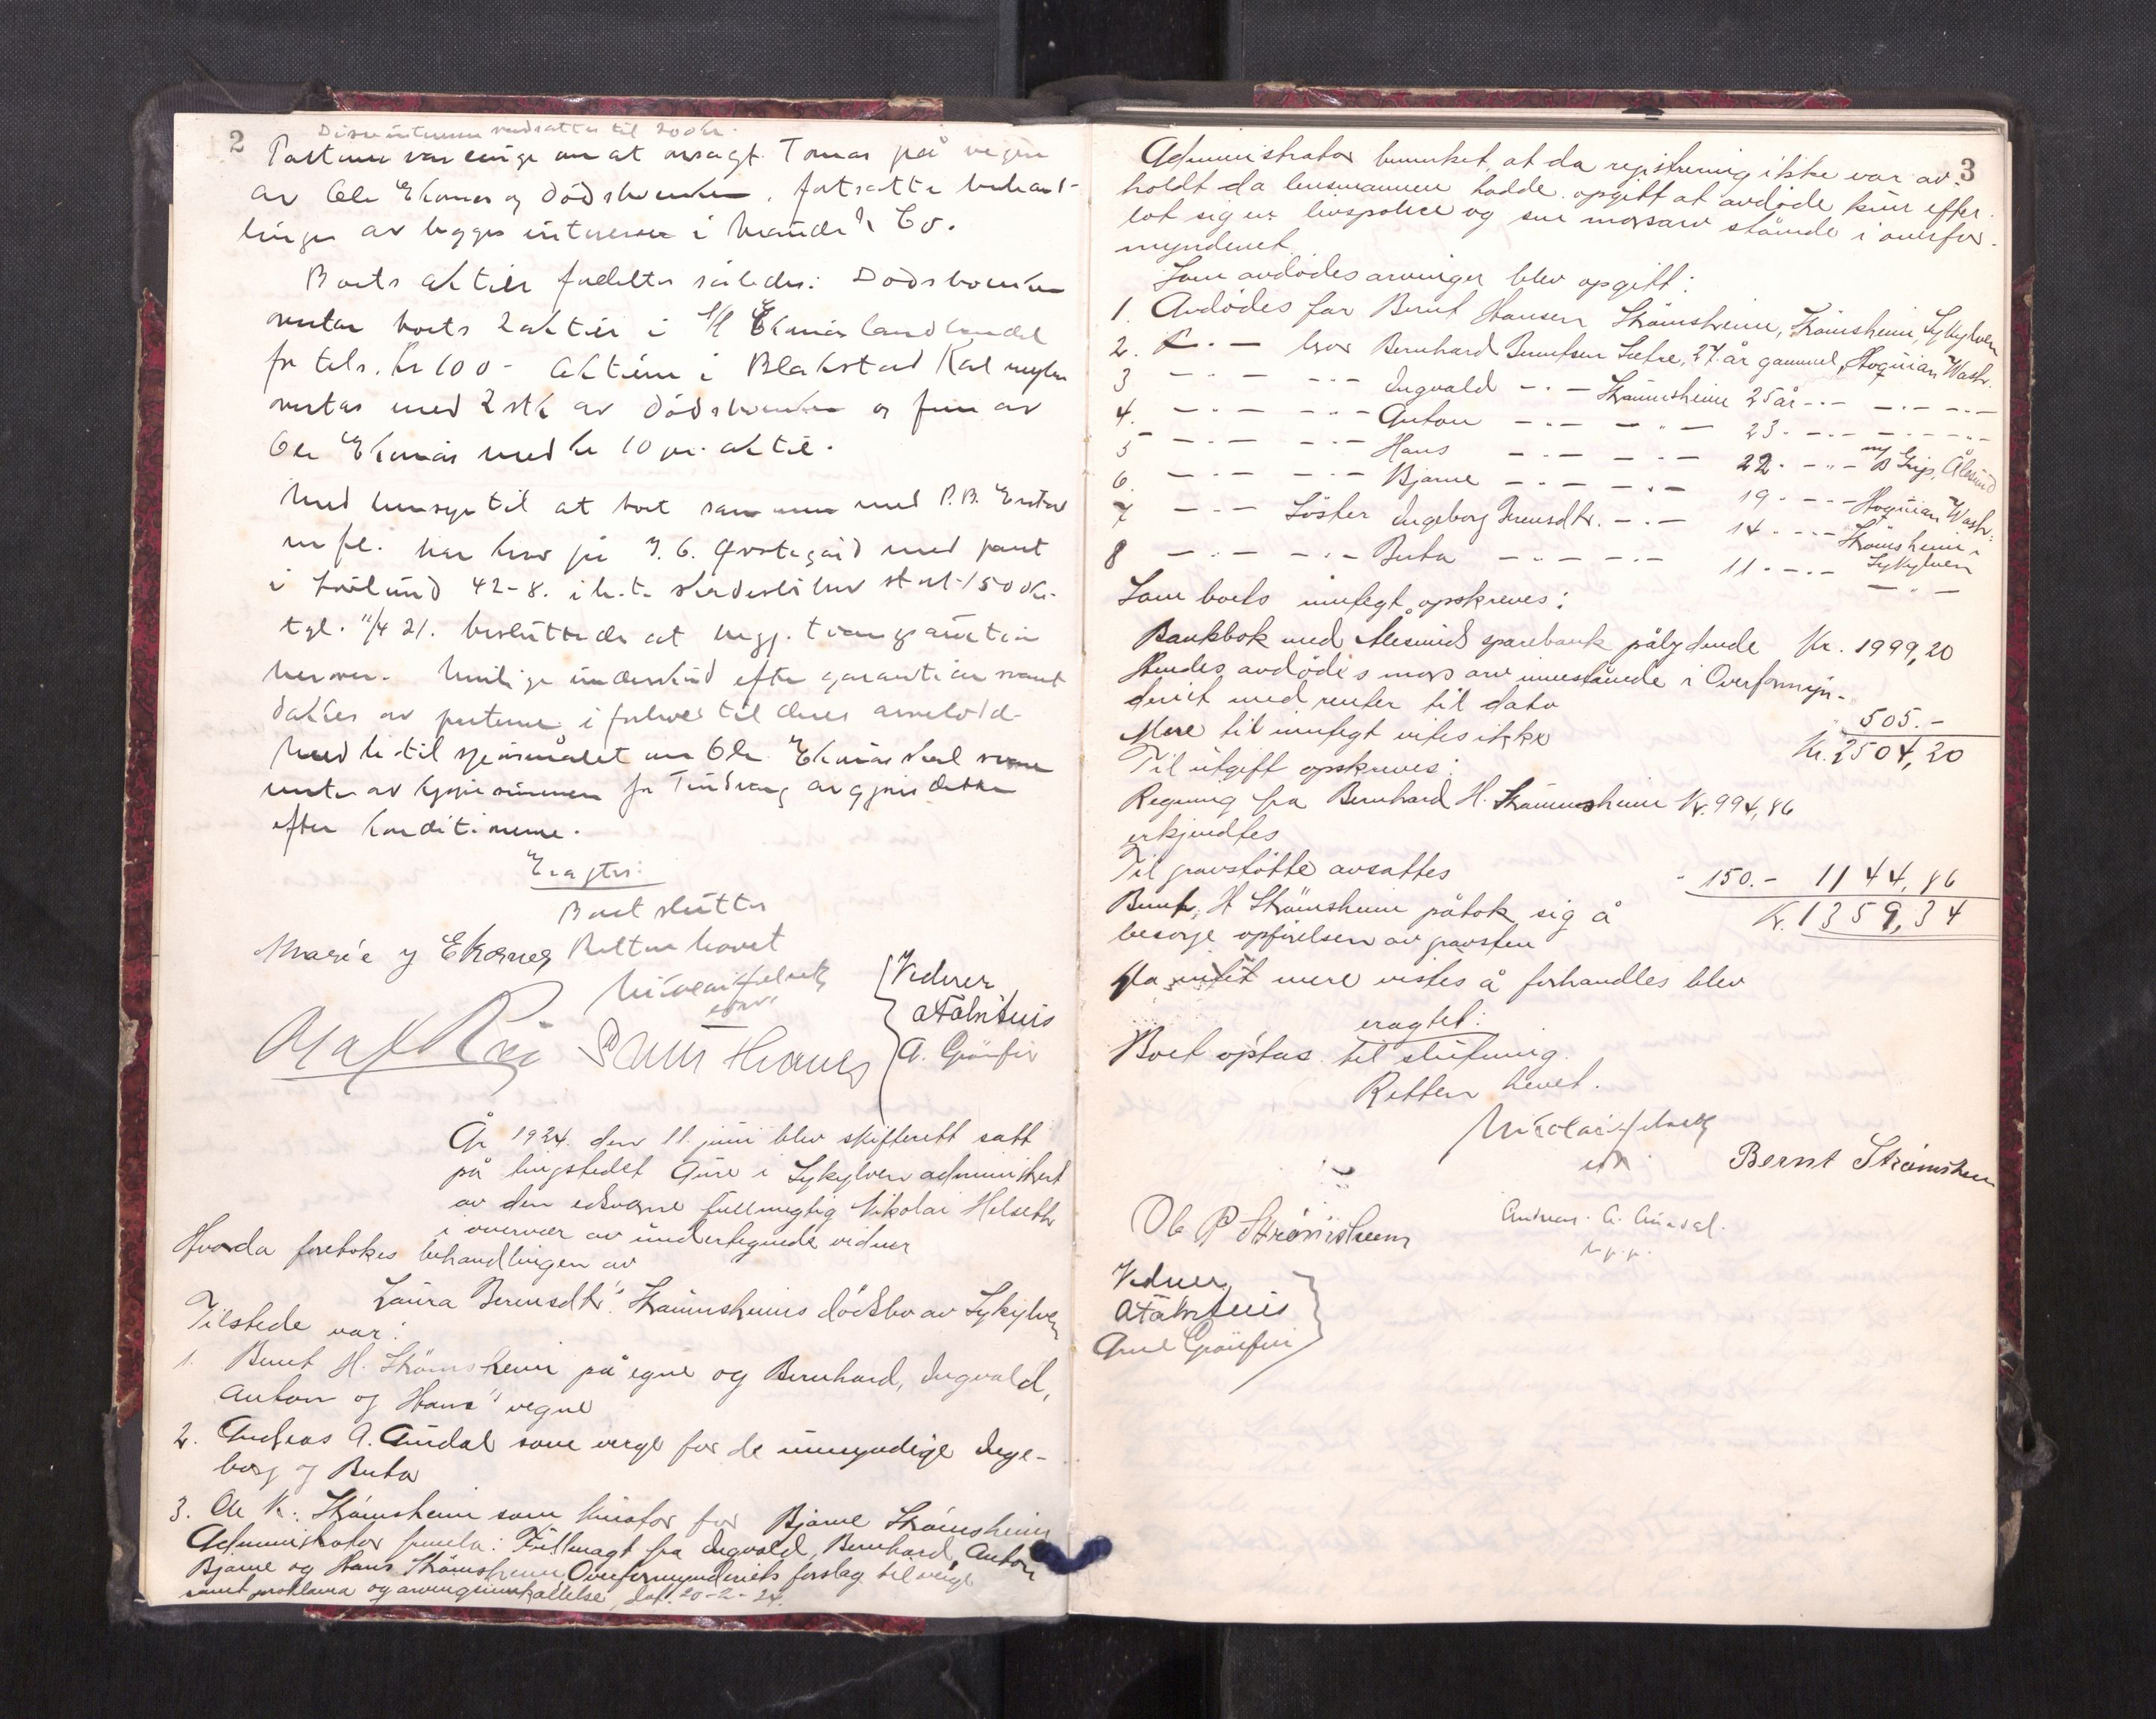 2
Disse interesser nedsattes til 200 kr.
Partene var enige om at overdra Tomas på vegne
av Ole Ekornes og dødsboenken, fortsatte behand-
lingen av begges interesser i & Co.
Boets aktier fordeltes således: Dødsboenken
overtar boets 2 aktier i A/S Ekornes landhandel
for tils. kr 100 - Aktiene i Blakstad
overtas med 2 stk av dødsboenken og fem av
Ole Ekornes med kr 10 pr. aktie.
Med hensyn til at boet sammen med P.B.
m. fl. har krav på J. C. Øvstegård med pant
i 42-8. i h.t. skadesløsbrev stort 1500 kr.
tgl. 11/4 21. besluttedes at
herover. Mulige underskud efter garantien
dækkes av partene i forhold til deres arvelod
Med h. til spørsmålet om Ole Ekornes skal svare
renter av kjøpesummen for Tindvang avgjøres dette
efter konditionerne.
Eragtes:
Boet sluttes
Marie J Ekornes Retten hævet
Nicolai Helseth
edsv.
Vidner
A. Grønfur
År 1924 den 11. juni blev skifterett satt
på tingstedet Aure i Sykylven administrert
av den edsvorne fullmegtig Nikolai Helseth
i overvær av undertegnede vidner
Hvorda foretokes behandlingen av
Laura Berntsdtr. Strømsheims dødsbo av Sykylven
Tilstede var:
1. Bernt H. Strømsheim på egne og Bernhard, Ingvald,
Anton og Hans' vegne
2. Andreas A. Aurdal som verge for de umyndige Inge-
borg og Berta
3. Ole K. Strømsheim som kurator for Bjarne Strømsheim
Administrator fremla: Fullmagt fra Ingvald, Bernhard, Anton
Bjarne og Hans Strømsheim Overformynderiets forslag til verge
samt proklama og arvingsinnkallelse, dat. 20-2-24.
3
Administrator bemerket, at da registrering ikke var av-
holdt da lensmannen hadde opgitt at avdøde kun efter-
lot sig en livspolice og sin morsarv stående i overfor-
mynderiet
Som avdødes arvinger blev opgitt:
1. Avdødes far Bernt Hansen Strømsheim, Strømsheim, Sykylven
2. — " — bror Bernhard Berntsen Sætre, 27 år gammel, Hoquian Wash.
3 — " — — " — Ingvald — " — Strømsheim 25 år — " — — " — — " —
4. — " — — " — Anton — " — — " — 23. — " — — " — — " —
5 — " — — " — Hans — " — — " — 22. — " — Grip, Ålesund
6. — " — — " — Bjarne — " — — " — 19. — " — Hoquian Wash.
7 — " — Søster Ingeborg Berntsdtr. — " — 14. — " — Strømsheim i Sykylven
8 — " — — " — Berta — " — — " — 11. — " — — " —
Som boets inntegt opskreves:
Bankbok med Ålesunds sparebank pålydende Kr. 1999,20
Hendes, avdødes mors arv innestående i Overformyn-
deriet med renter til dato " 505.-
Mere til inntegt vites ikke Kr. 2504,20
Til utgift opskreves:
Regning fra Bernhard H. Strømsheim Kr. 994,86
erkjendtes
Til gravstøtte avsattes " 150.- 1144,86
Bernt H Strømsheim påtok sig å Kr. 1359,34
besørge opførelsen av gravsten
Da intet mere vistes å forhandles blev
eragtet:
Boet optas til slutning.
Retten hevet.
Nicolai Helseth
edsv.
Bernt Strømsheim
Ole P Strømsheim
Andreas A. Aurdal.
m. p. p.
Vidner,
Arne Grønfur